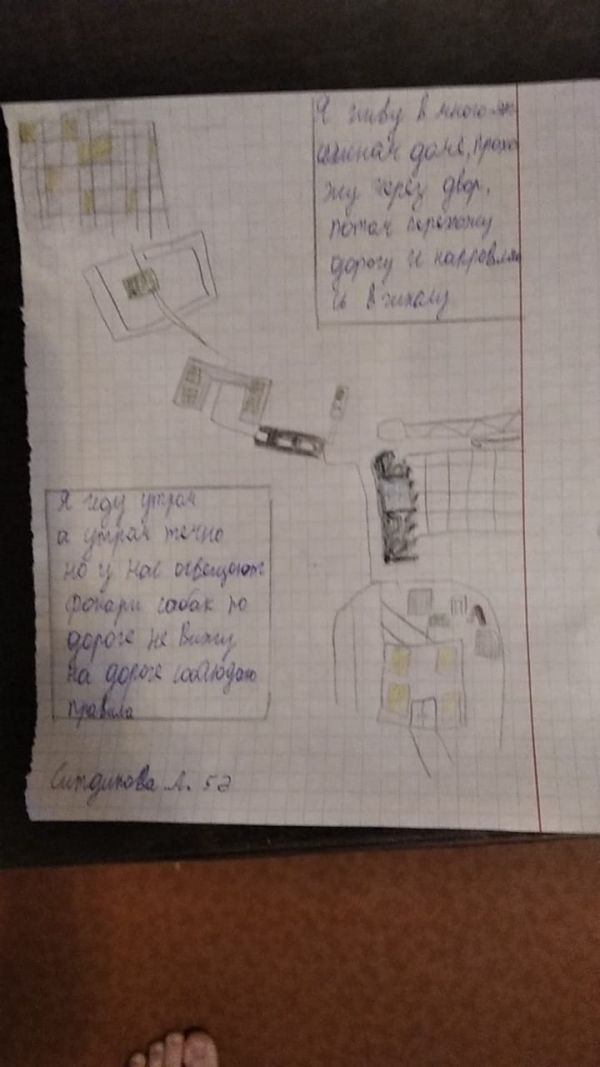 Я живу в многоэт
ажном доме, прохо
жу через двор,
потом перехожу
дорогу и направляю
сь в школу
Я иду утром
а утром темно
но у нас освещают
фонари собак по
дороге не вижу
на дороге соблюдаю
правила
Ситдикова А. 5